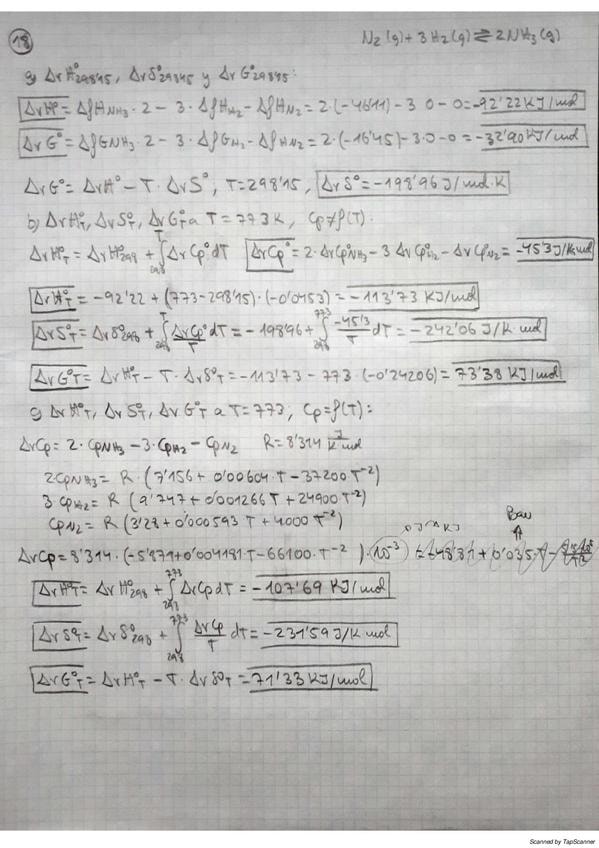 18
N₂(g)+3H₂(g)⇄2NH₃(g)
a) ΔrH°298'15, ΔrS°298'15 y ΔrG°298'15:
ΔrH°=ΔfH NH₃·2-3·ΔfH H₂-ΔfH N₂=2·(-46'11)-3·0-0=-92'22 KJ/mol
ΔrG°=ΔfG NH₃·2-3·ΔfG H₂-ΔfH N₂=2·(-16'45)-3·0-0=-32'90 KJ/mol
ΔrG°=ΔrH°-T·ΔrS°, T=298'15, ΔrS°=-198'96 J/mol·K
b) ΔrH°T, ΔrS°T, ΔrG°T a T=773K, Cp≠f(T).
ΔrH°T=ΔrH°298+∫298^T ΔrCp°dT ΔrCp°=2·ΔrCp°NH₃-3ΔrCp°H₂-ΔrCp°N₂=-45'3 J/K·mol
ΔrH°T=-92'22+(773-298'15)·(-0'0453)=-113'73 KJ/mol
ΔrS°T=ΔrS°298+∫298^T ΔrCp°/T dT=-198'96+∫298^773 -45'3/T dT=-242'06 J/K·mol
ΔrG°T=ΔrH°T-T·ΔrS°T=-113'73-773·(-0'24206)=73'38 KJ/mol
c) ΔrH°T, ΔrS°T, ΔrG°T a T=773, Cp=f(T):
ΔrCp=2·CpNH₃-3·CpH₂-CpN₂ R=8'314 J/K·mol
2CpNH₃=R·(7'156+0'00604·T-37200T⁻²)
3CpH₂=R(9'747+0'001266T+24900T⁻²)
CpN₂=R(3'28+0'000593T+4000T⁻²)
0J→KJ
ΔrCp=8'314·(-5'871+0'004181T-66100·T⁻²)·10⁻³
ΔrH°T=ΔrH°298+∫298^773 ΔrCpdT=-107'69 KJ/mol
ΔrS°T=ΔrS°298+∫298^773 ΔrCp/T dT=-231'59 J/K mol
ΔrG°T=ΔrH°T-T·ΔrS°T=71'33 KJ/mol
Scanned by TapScanner